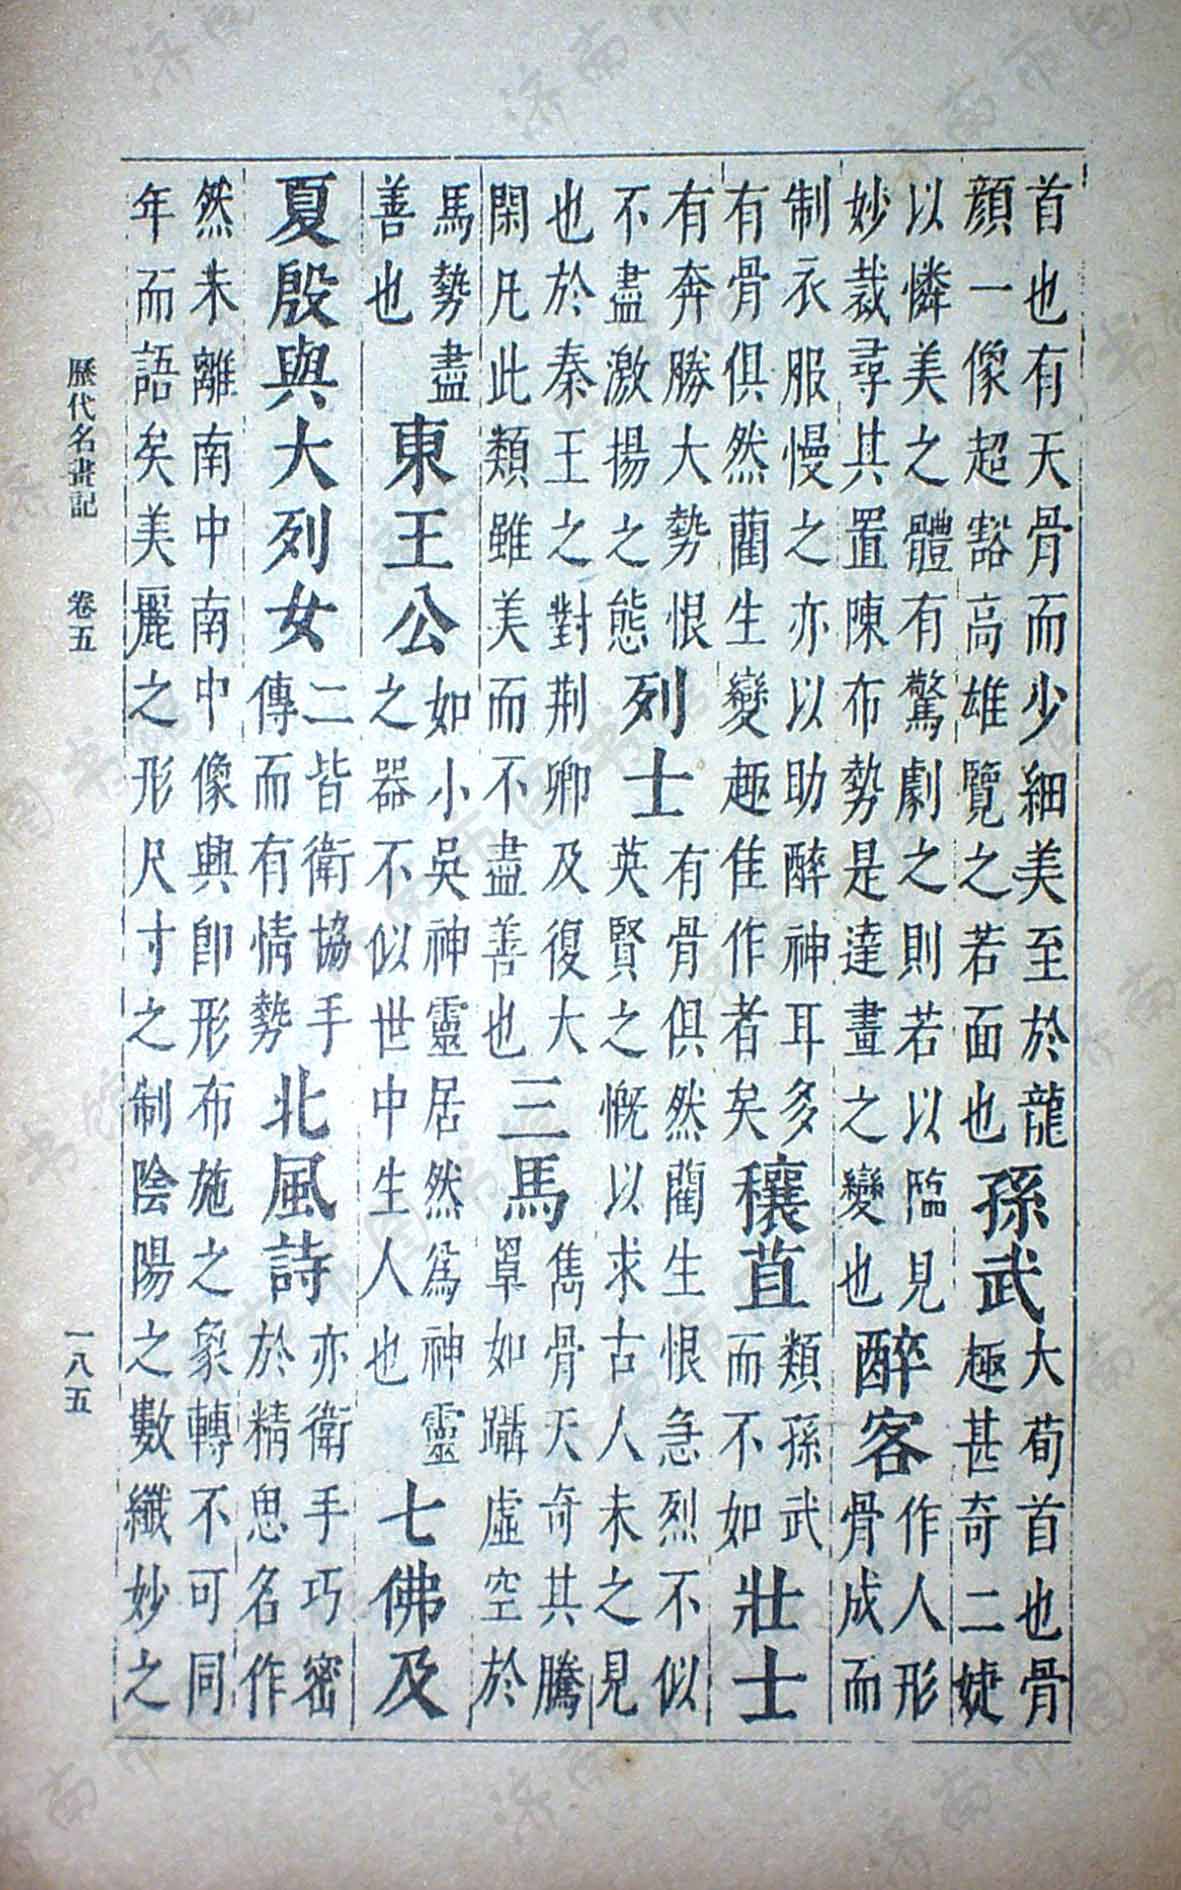 首也有天骨而少細美至於龍
顏一像超豁高雄覽之若面也
孫武
大荀首也骨
趣甚奇二婕
以憐美之體有驚劇之則若以臨見
妙裁尋其置陳布勢是達畫之變也
醉客
作人形
骨成而
制衣服慢之亦以助醉神耳多
有骨俱然藺生變趣佳作者矣
穰苴
類孫武
而不如
壯士
有奔勝大勢恨
不盡激揚之態
列士
有骨俱然藺生恨急烈不似
英賢之慨以求古人未之見
也於秦王之對荆卿及復大
閑凡此類雖美而不盡善也
三馬
雋骨天奇其騰
罩如躡虛空於
馬勢盡
善也
東王公
如小吳神靈居然爲神靈
之器不似世中生人也
七佛及
夏殷與大列女
二皆衛協手
傳而有情勢
北風詩
亦衛手巧密
於精思名作
然未離南中南中像興卽形布施之象轉不可同
年而語矣美麗之形尺寸之制陰陽之數纖妙之
歷代名畫記　卷五　一八五